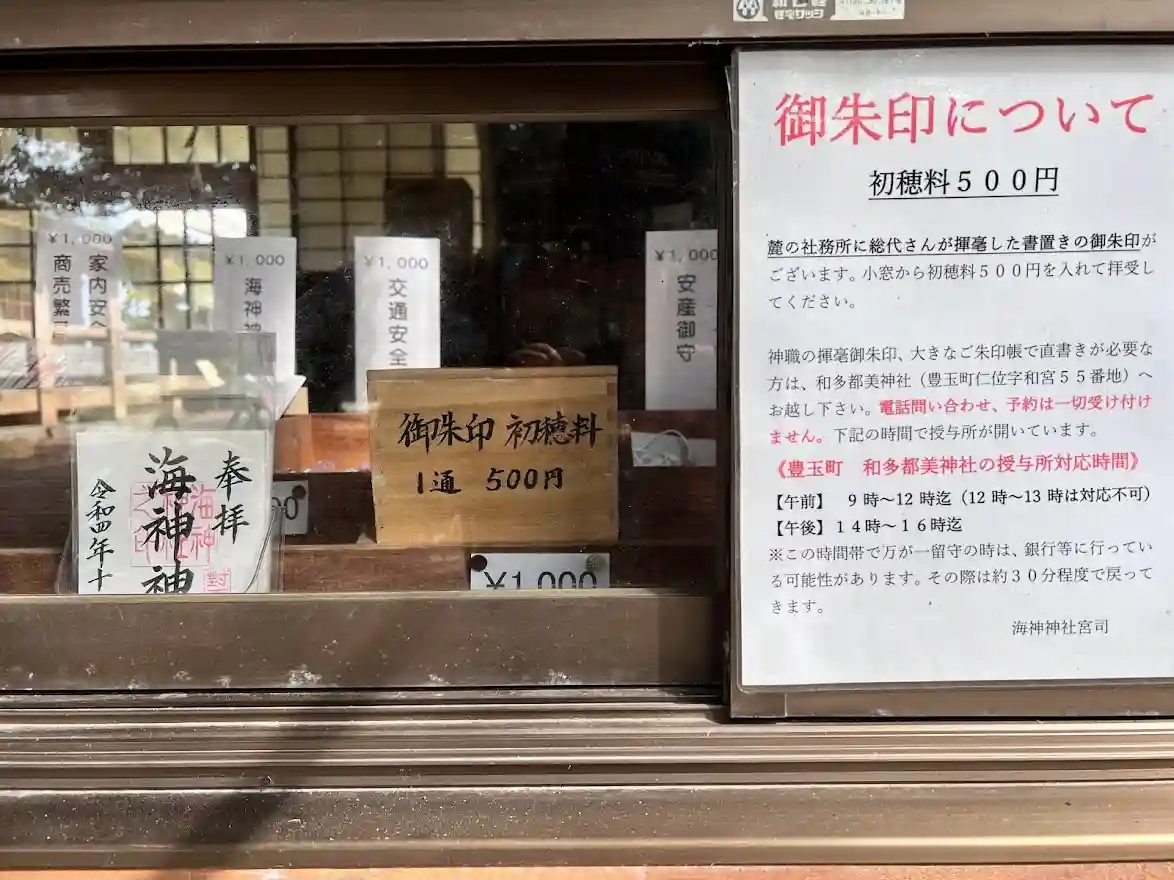 ¥1,000
家内安全
商売繁
¥1,000
海神神
¥1,000
交通安全
¥1,000
安産御守
御朱印 初穂料
1通 500円
奉拝
海神神
令和四年十
¥1,000
御朱印について
初穂料５００円
麓の社務所に総代さんが揮毫した書置きの御朱印が
ございます。小窓から初穂料５００円を入れて拝受し
てください。
神職の揮毫御朱印、大きなご朱印帳で直書きが必要な
方は、和多都美神社（豊玉町仁位字和宮５５番地）へ
お越し下さい。電話問い合わせ、予約は一切受け付け
ません。下記の時間で授与所が開いています。
《豊玉町　和多都美神社の授与所対応時間》
【午前】　９時～12時迄（12時～13時は対応不可）
【午後】１４時～１６時迄
※この時間帯で万が一留守の時は、銀行等に行ってい
る可能性があります。その際は約３０分程度で戻って
きます。
海神神社宮司